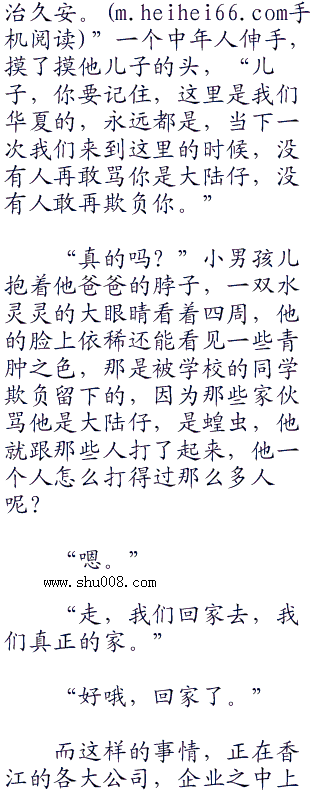 治久安。(m.heihei66.com手
机阅读)”一个中年人伸手，
摸了摸他儿子的头，“儿
子，你要记住，这里是我们
华夏的，永远都是，当下一
次我们来到这里的时候，没
有人再敢骂你是大陆仔，没
有人敢再欺负你。”
“真的吗？”小男孩儿
抱着他爸爸的脖子，一双水
灵灵的大眼睛看着四周，他
的脸上依稀还能看见一些青
肿之色，那是被学校的同学
欺负留下的，因为那些家伙
骂他是大陆仔，是蝗虫，他
就跟那些人打了起来，他一
个人怎么打得过那么多人
呢？
“嗯。”
www.shu008.com
“走，我们回家去，我
们真正的家。”
“好哦，回家了。”
而这样的事情，正在香
江的各大公司，企业之中上